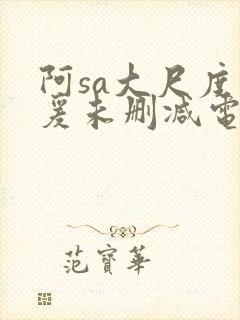 阿sa大尺度
爰未删减電
范寶華